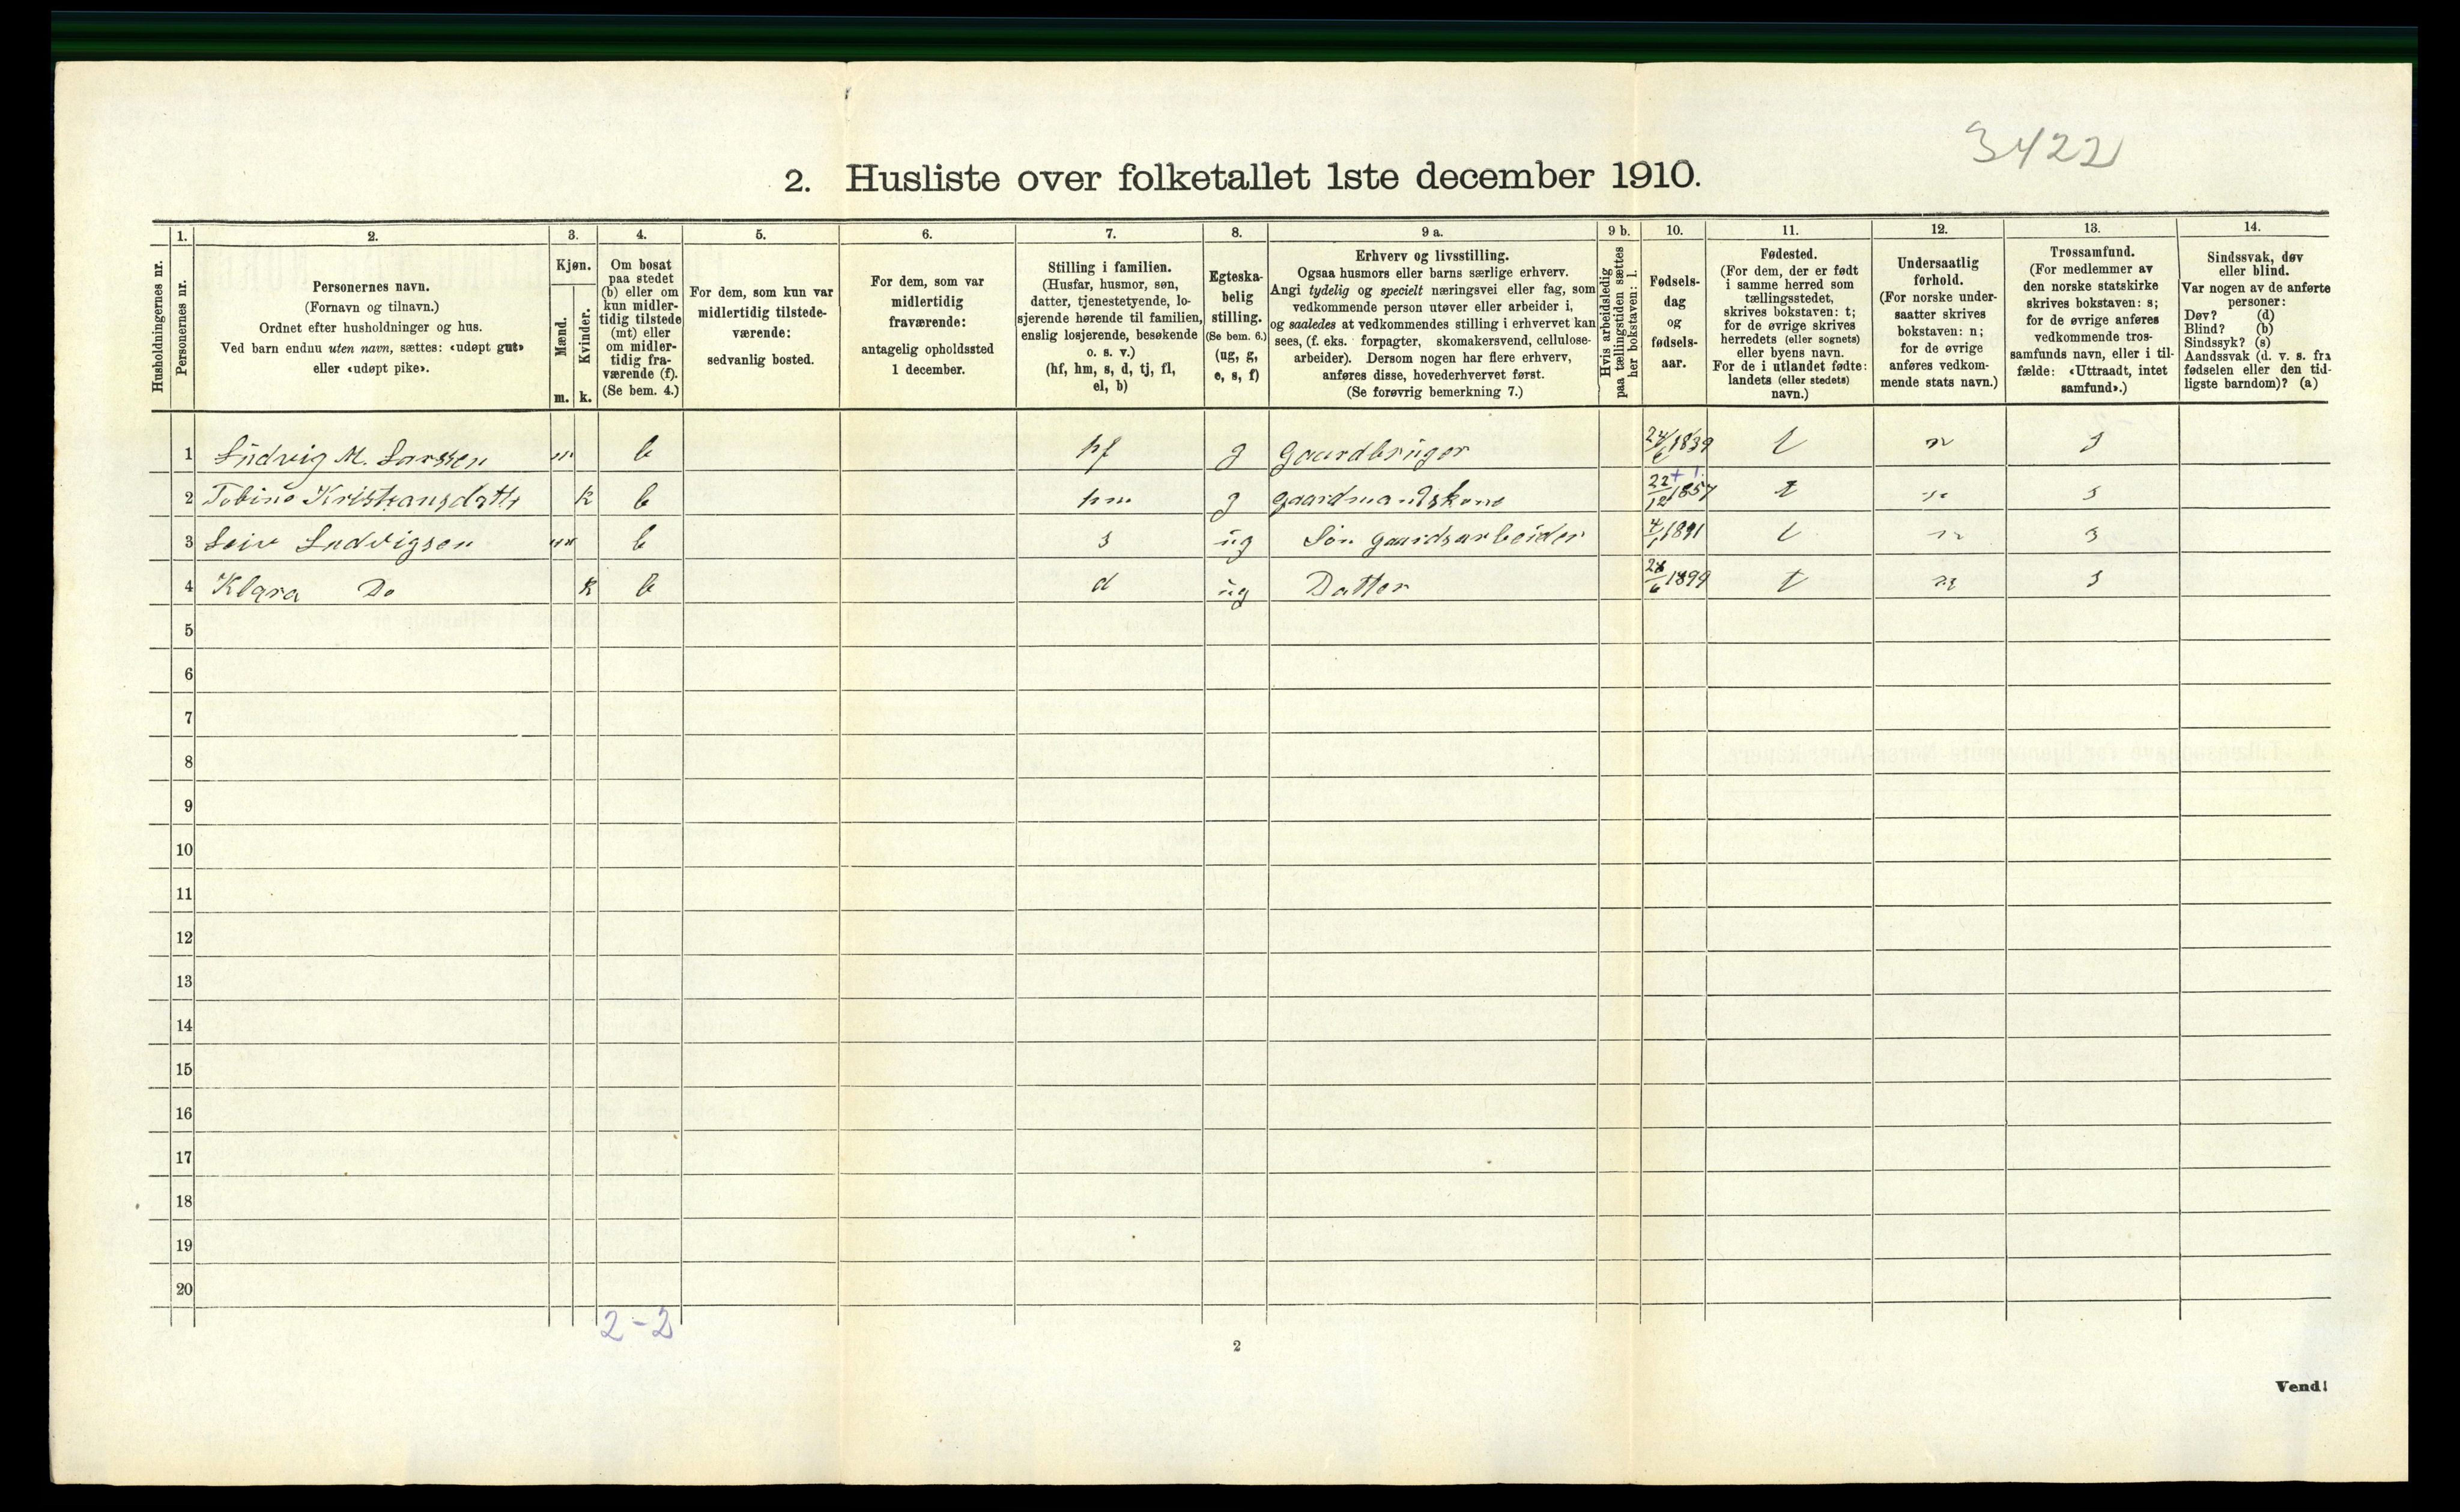 3422
2. Husliste over folketallet 1ste december 1910.
Husholdningernes nr.
1.
Personernes nr.
2.
Personernes navn.
(Fornavn og tilnavn.)
Ordnet efter husholdninger og hus.
Ved barn endnu uten navn, sættes: «udøpt gut»
eller «udøpt pike».
3.
Kjøn.
Mænd.
Kvinder.
m. k.
4.
Om bosat
paa stedet
(b) eller om
kun midler-
tidig tilstede
(mt) eller
om midler-
tidig fra-
værende (f).
(Se bem. 4.)
5.
For dem, som kun var
midlertidig tilstede-
værende:
sedvanlig bosted.
6.
For dem, som var
midlertidig
fraværende:
antagelig opholdssted
1 december.
7.
Stilling i familien.
(Husfar, husmor, søn,
datter, tjenestetyende, lo-
sjerende hørende til familien,
enslig losjerende, besøkende
o. s. v.)
(hf, hm, s, d, tj, fl,
el, b)
8.
Egteska-
belig
stilling.
(Se bem. 6.)
(ug, g,
e, s, f)
9 a.
Erhverv og livsstilling.
Ogsaa husmors eller barns særlige erhverv.
Angi tydelig og specielt næringsvei eller fag, som
vedkommende person utøver eller arbeider i,
og saaledes at vedkommendes stilling i erhvervet kan
sees, (f. eks. forpagter, skomakersvend, cellulose-
arbeider). Dersom nogen har flere erhverv,
anføres disse, hovederhvervet først.
(Se forøvrig bemerkning 7.)
9 b.
Hvis arbeidsledig
paa tællingstiden sættes
her bokstaven: l.
10.
Fødsels-
dag
og
fødsels-
aar.
11.
Fødested.
(For dem, der er født
i samme herred som
tællingsstedet,
skrives bokstaven: t;
for de øvrige skrives
herredets (eller sognets)
eller byens navn.
For de i utlandet fødte:
landets (eller stedets)
navn.)
12.
Undersaatlig
forhold.
(For norske under-
saatter skrives
bokstaven: n;
for de øvrige
anføres vedkom-
mende stats navn.)
13.
Trossamfund.
(For medlemmer av
den norske statskirke
skrives bokstaven: s;
for de øvrige anføres
vedkommende tros-
samfunds navn, eller i til-
fælde: «Uttraadt, intet
samfund».)
14.
Sindssvak, døv
eller blind.
Var nogen av de anførte
personer:
Døv? (d)
Blind? (b)
Sindssyk? (s)
Aandssvak (d. v. s. fra
fødselen eller den tid-
ligste barndom)? (a)
1 Ludvig M. Larssen m b hf g Gaardbruger 24/6 1839 t n s
2 Tobine Kristiansdattr k b hm g gaardmandskone 22/12 1857 t n s
3 Leiv Ludvigsen m b s ug Søn gaardsarbeider 4/1 1891 t n s
4 Klara Do k b d ug Datter 28/6 1899 t n s
5
6
7
8
9
10
11
12
13
14
15
16
17
18
19
20
2-2
2
Vend!